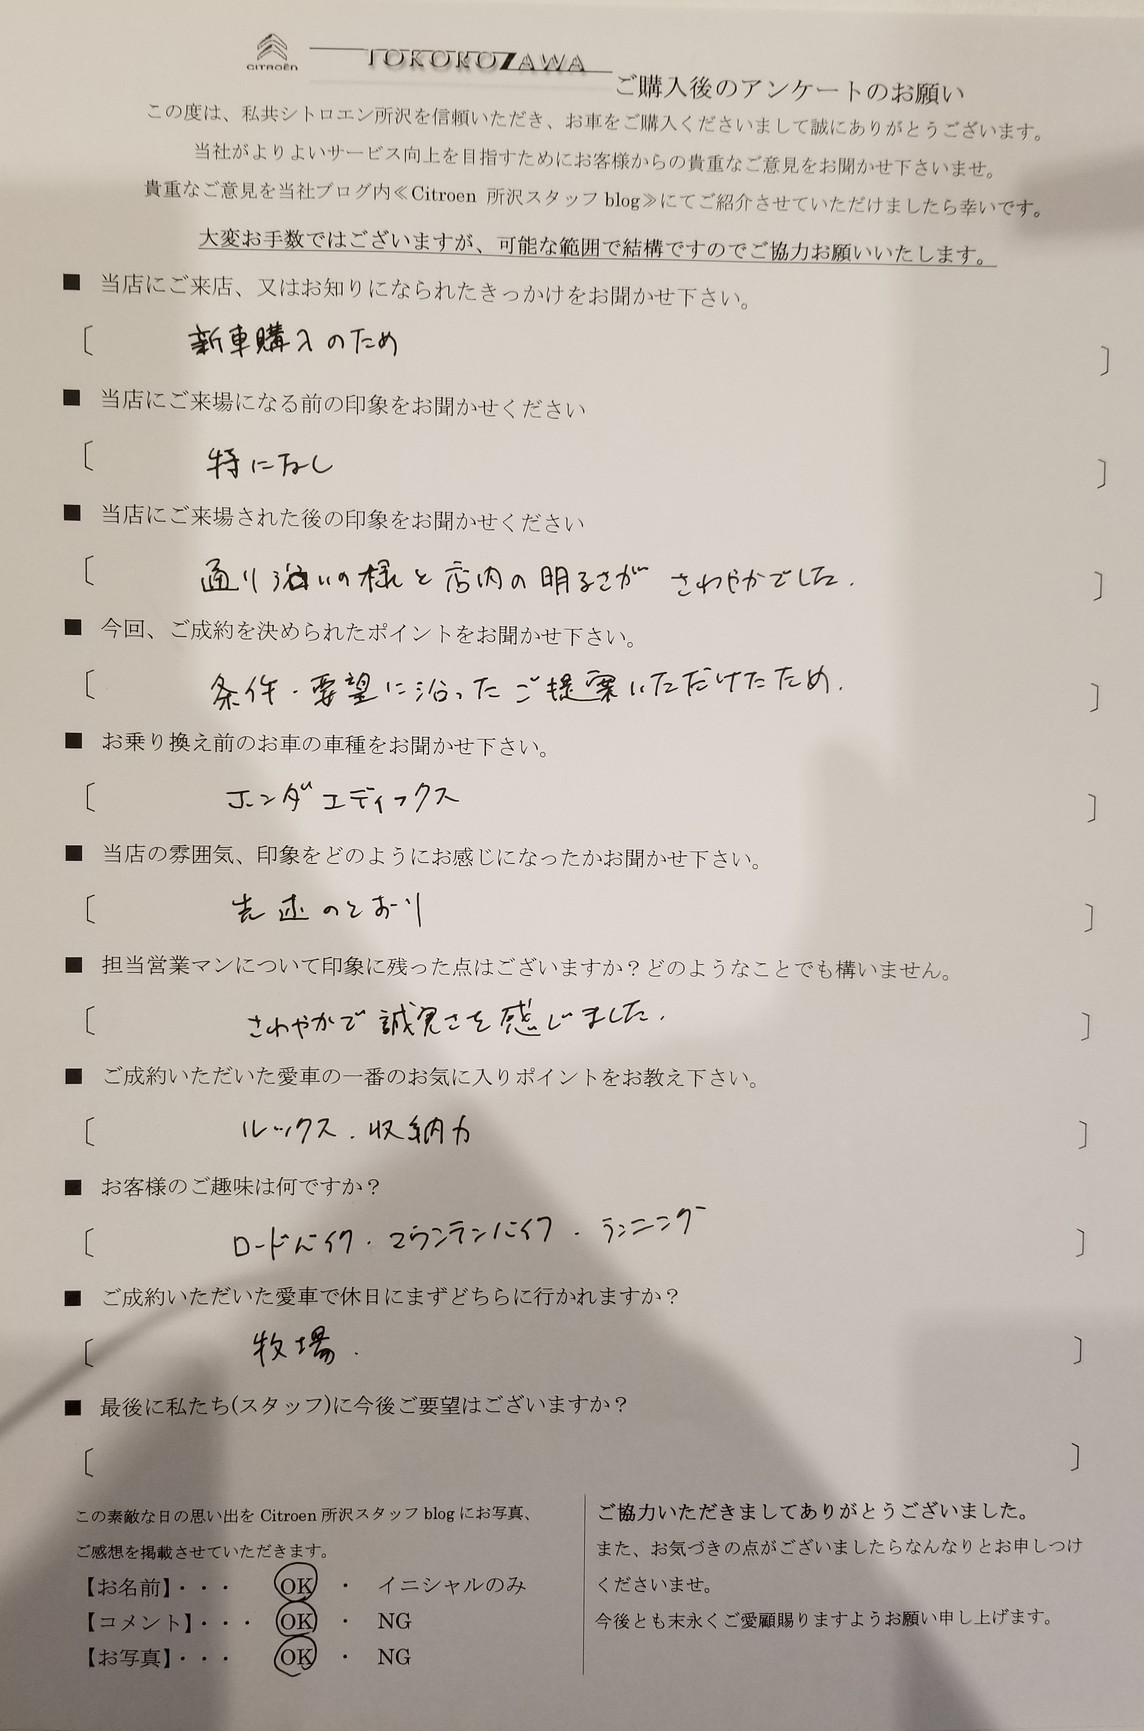 CITROËN
TOKOROZAWA
ご購入後のアンケートのお願い
この度は、私共シトロエン所沢を信頼いただき、お車をご購入くださいまして誠にありがとうございます。
当社がよりよいサービス向上を目指すためにお客様からの貴重なご意見をお聞かせ下さいませ。
貴重なご意見を当社ブログ内≪Citroen 所沢スタッフ blog≫にてご紹介させていただけましたら幸いです。
大変お手数ではございますが、可能な範囲で結構ですのでご協力お願いいたします。
■ 当店にご来店、又はお知りになられたきっかけをお聞かせ下さい。
〔 新車購入のため 〕
■ 当店にご来場になる前の印象をお聞かせください
〔 特になし 〕
■ 当店にご来場された後の印象をお聞かせください
〔 通り沿いの様と店内の明るさが さわやかでした. 〕
■ 今回、ご成約を決められたポイントをお聞かせ下さい。
〔 条件・要望に沿ったご提案いただけたため. 〕
■ お乗り換え前のお車の車種をお聞かせ下さい。
〔 ホンダエディックス 〕
■ 当店の雰囲気、印象をどのようにお感じになったかお聞かせ下さい。
〔 先述のとおり 〕
■ 担当営業マンについて印象に残った点はございますか？どのようなことでも構いません。
〔 さわやかで誠実さを感じました. 〕
■ ご成約いただいた愛車の一番のお気に入りポイントをお教え下さい。
〔 ルックス・収納力 〕
■ お客様のご趣味は何ですか？
〔 ロードバイク・マウンテンバイク・ランニング 〕
■ ご成約いただいた愛車で休日にまずどちらに行かれますか？
〔 牧場. 〕
■ 最後に私たち(スタッフ)に今後ご要望はございますか？
〔 〕
この素敵な日の思い出を Citroen 所沢スタッフ blog にお写真、
ご感想を掲載させていただきます。
【お名前】・・・ OK ・ イニシャルのみ
【コメント】・・・ OK ・ NG
【お写真】・・・ OK ・ NG
ご協力いただきましてありがとうございました。
また、お気づきの点がございましたらなんなりとお申しつけ
くださいませ。
今後とも末永くご愛顧賜りますようお願い申し上げます。